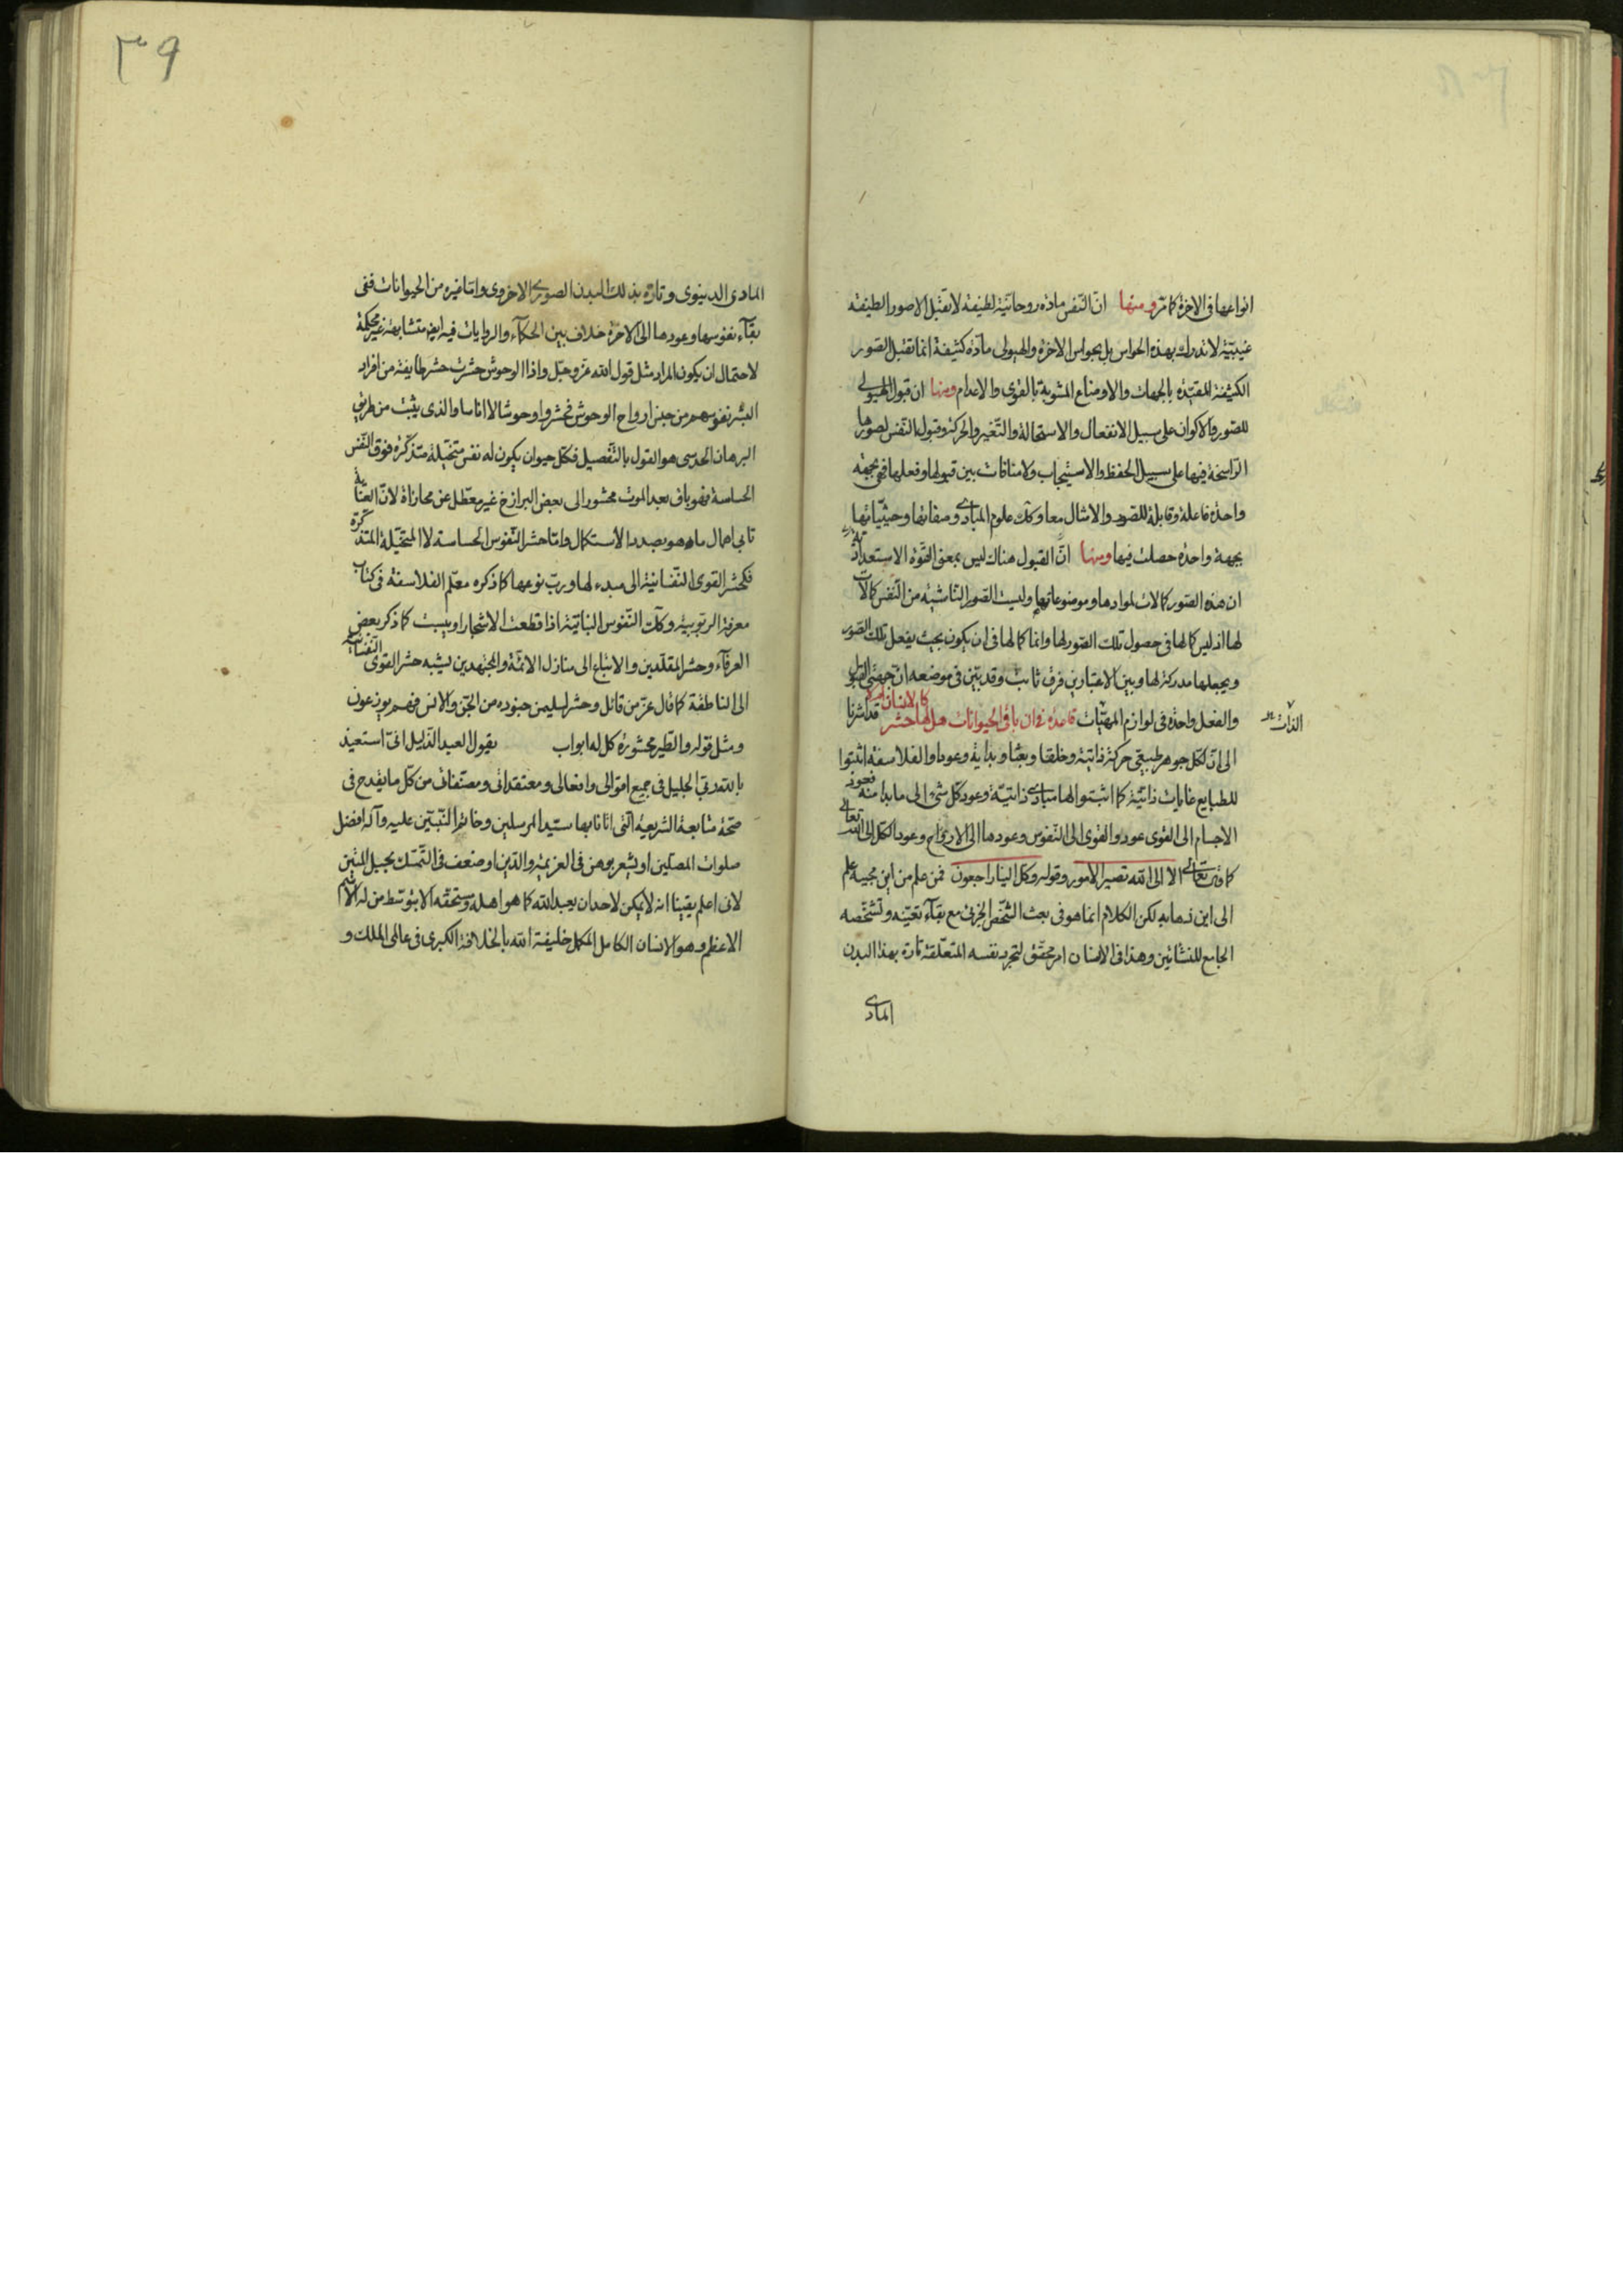 انواعها فى الاخرة كما مرّ ومنها انّ النّفس مادة روحانيّة لطيفة لا تقبل الا صورا لطيفة
غيبيّة لا تدرك بهذه الحواس بل بحواس الاخرة والهيولى مادّة كثيفة انما تقبل الصّور
الكثيفة المقيّدة بالجهات والاوضاع المشوبة بالقوى والاعدام ومنها ان قبول الهيولى
للصّور والاكوان على سبيل الانفعال والاستحالة والتّغير والحركة وقبول النّفس لصورها
الرّاسخة فيها على سبيل الحفظ والاستيجاب ولا منافات بين قبولها وفعلها فهى بجهة
واحدة فاعلة وقابلة للصّور والامثال معا وكك علوم المبادى وصفاتها وحيثيّاتها
بجهة واحدة حصلت فيها ومنها انّ القبول هناك ليس بمعنى القوّة الاستعدادية
ان هذه الصّور كمالات لموادها وموضوعاتها وليست الصّور الناشئة من النّفس كمالات
لها اذ ليس كمالها فى حصول تلك الصّور لها وانما كمالها فى ان يكون بحيث يفعل تلك الصّور
ويجعلها مدركة لها وبين الاعتبارين فرق ثابت وقد بيّن فى موضعه ان جهتى القبول
والفعل واحدة فى لوازم المهيّات قاعدة فى ان باقى الحيوانات هل لها حشر كالانسان ام لا قد اشرنا
الذات
الى انّ لكل جوهر طبيعى حركة ذاتيّة وخلقا وبعثا وبداية وعودا والفلاسفة اثبتوا
للطبايع غايات ذاتيّة كما اثبتوا لها مبادى ذاتيّة وعود كل شئ الى ما بدا منه فعود
الاجسام الى القوى عود والقوى الى النّفوس وعودها الى الارواح وعود الكل الى الله تعالى
كما قال تعالى الا الى الله تصير الامور وقوله وكل الينا راجعون فمن علم من اين مجيئه علم
الى اين ذهابه لكن الكلام انما هو فى بعث الشّخص الجزئى مع بقاء تعيّنه وتشخّصه
الجامع للنشأتين وهذا فى الانسان امر محقّق لتجرد نفسه المتعلّقة تارة بهذا البدن
المادى
٣٩
المادى الدنيوى وتارة بذلك البدن الصورى الاخروى وامّا غيره من الحيوانات ففى
بقاء نفوسها وعودها الى الاخرة خلاف بين الحكماء والروايات فيه ايض متشابهة غير محكمة
لاحتمال ان يكون المراد مثل قول الله عزّ وجلّ واذا الوحوش حشرت حشر طايفة من افراد
البشر نفوسهم من جنس ارواح الوحوش فحشروا وحوشا لا اناسا والذى يثبت من طريق
البرهان الحدسى هو القول بالتّفصيل فكل حيوان يكون له نفس متخيّلة متذكّرة فوق النّفس
الحساسة فهو باق بعد الموت محشور الى بعض البرازخ غير معطّل عن مجازاة لانّ العناية
تابى اهمال ما هو بصدد الاستكمال وامّا حشر النّفوس الحساسة لا المتخيّلة المتذكّرة
فكحشر القوى النّفسانية الى مبدء لها وربّ نوعها كما ذكره معلّم الفلاسفة فى كتاب
معرفة الربوبيّة وكك النّفوس النباتيّة اذا قطعت الاشجار او يبست كما ذكر بعض
العرفاء وحشر المقلّدين والاتباع الى منازل الائمّة والمجتهدين يشبه حشر القوى النّفسانية
الى الناطقة كما قال عزّ من قائل وحشر لسليمن جنوده من الجنّ والانس فهم يوزعون
ومثل قوله والطّير محشورة كل له اواب يقول العبد الذّليل انّى استعيذ
بالله ربى الجليل فى جميع اقوالى وافعالى ومعتقداتى ومصنّفاتى من كلّ ما يقدح فى
صحّة متابعة الشريعة الّتى اتانا بها سيّد المرسلين وخاتم النّبيّين عليه وآله افضل
صلوات المصلّين او يشعر بوهن فى العزيمة والدّين او ضعف فى التّمسّك بحبل المتين
لانى اعلم يقينا انه لا يمكن لاحد ان يعبد الله كما هو اهله ومستحقّه الا بتوسّط من له الاسم
الاعظم وهو الانسان الكامل المكمل خليفة الله بالخلافة الكبرى فى عالمى الملك و